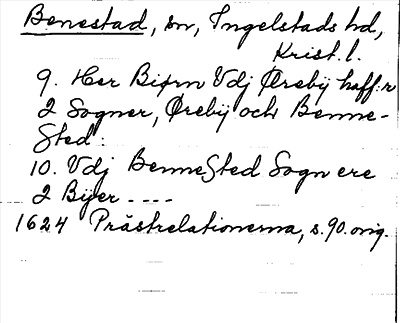 Benestad, sn, Ingelstads hd,
Krist. l.
9. Her Biørn Vdj Ørebÿ haff:r
2 Sogner, Ørebÿ och Benne-
Sted:
10. Vdj BenneSted Sogn ere
2 Bÿer ----
1624 Prästrelationerna, s. 90. orig.